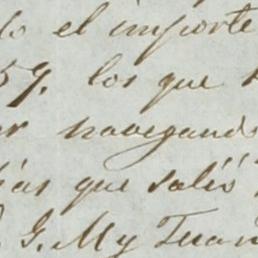 do el importe
59. los que
navegando
dias que salió
G. My Juan